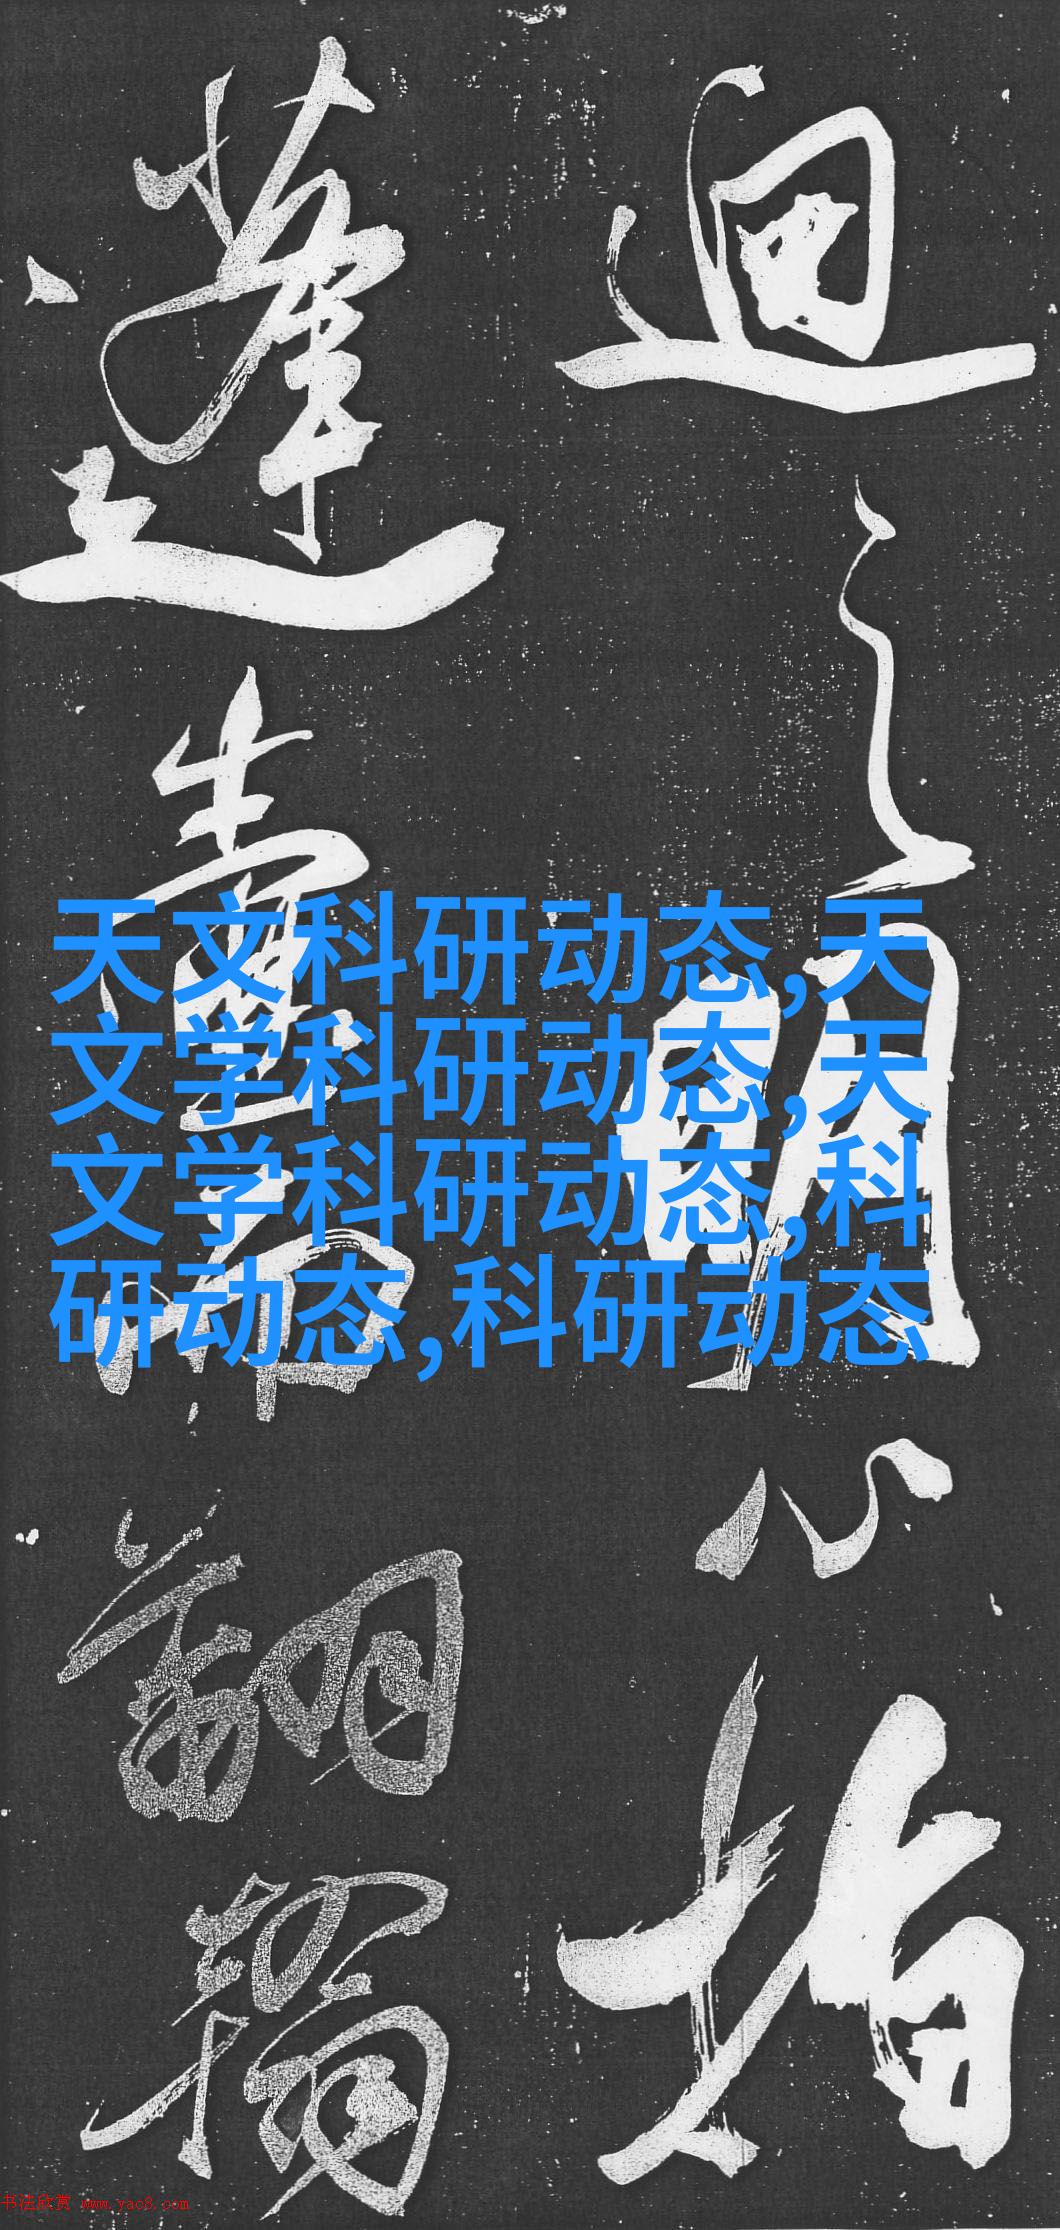 迴之胸心指
蓬壶而翻翰
天文科研动态,天
文学科研动态,天
文学科研动态,科
研动态,科研动态
书法欣赏 www.yac8.com